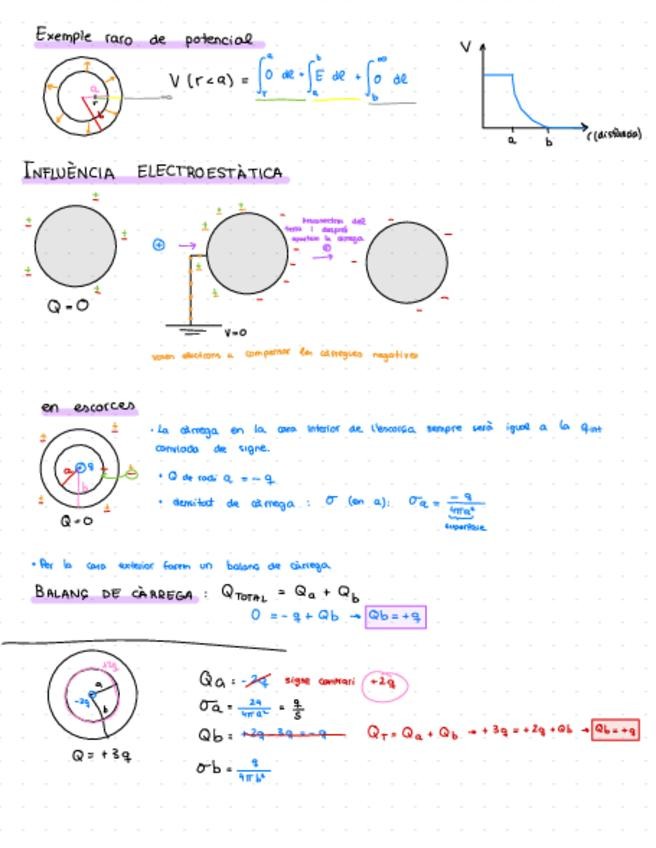 Exemple raro de potencial
V (r<a) = ∫_r^a 0 dl + ∫_a^b E dl + ∫_b^∞ 0 dl
V
a
b
r (distància)
a
r
b
INFLUÈNCIA ELECTROESTÀTICA
Q = 0
V=0
Desconnectem del
terra i després
apartem la càrrega
electrons a compensar les càrregues negatives
en escorces
a
q
b
Q=0
· La càrrega en la cara interior de l'escorça sempre serà igual a la qint
canviada de signe.
· Q de radi a = -q
· densitat de càrrega : σ (en a): σa = -q / 4πa²
superfície
· Per la cara exterior farem un balanç de càrrega
BALANÇ DE CÀRREGA : QTOTAL = Qa + Qb
0 = -q + Qb → Qb = +q
+2q
a
-2q
b
Q = +3q
Qa = -2q signe contrari +2q
σa = 2q / 4πa² = q / S
Qb = +2q - 3q = -q QT = Qa + Qb → +3q = +2q + Qb → Qb = +q
σb = q / 4πb²